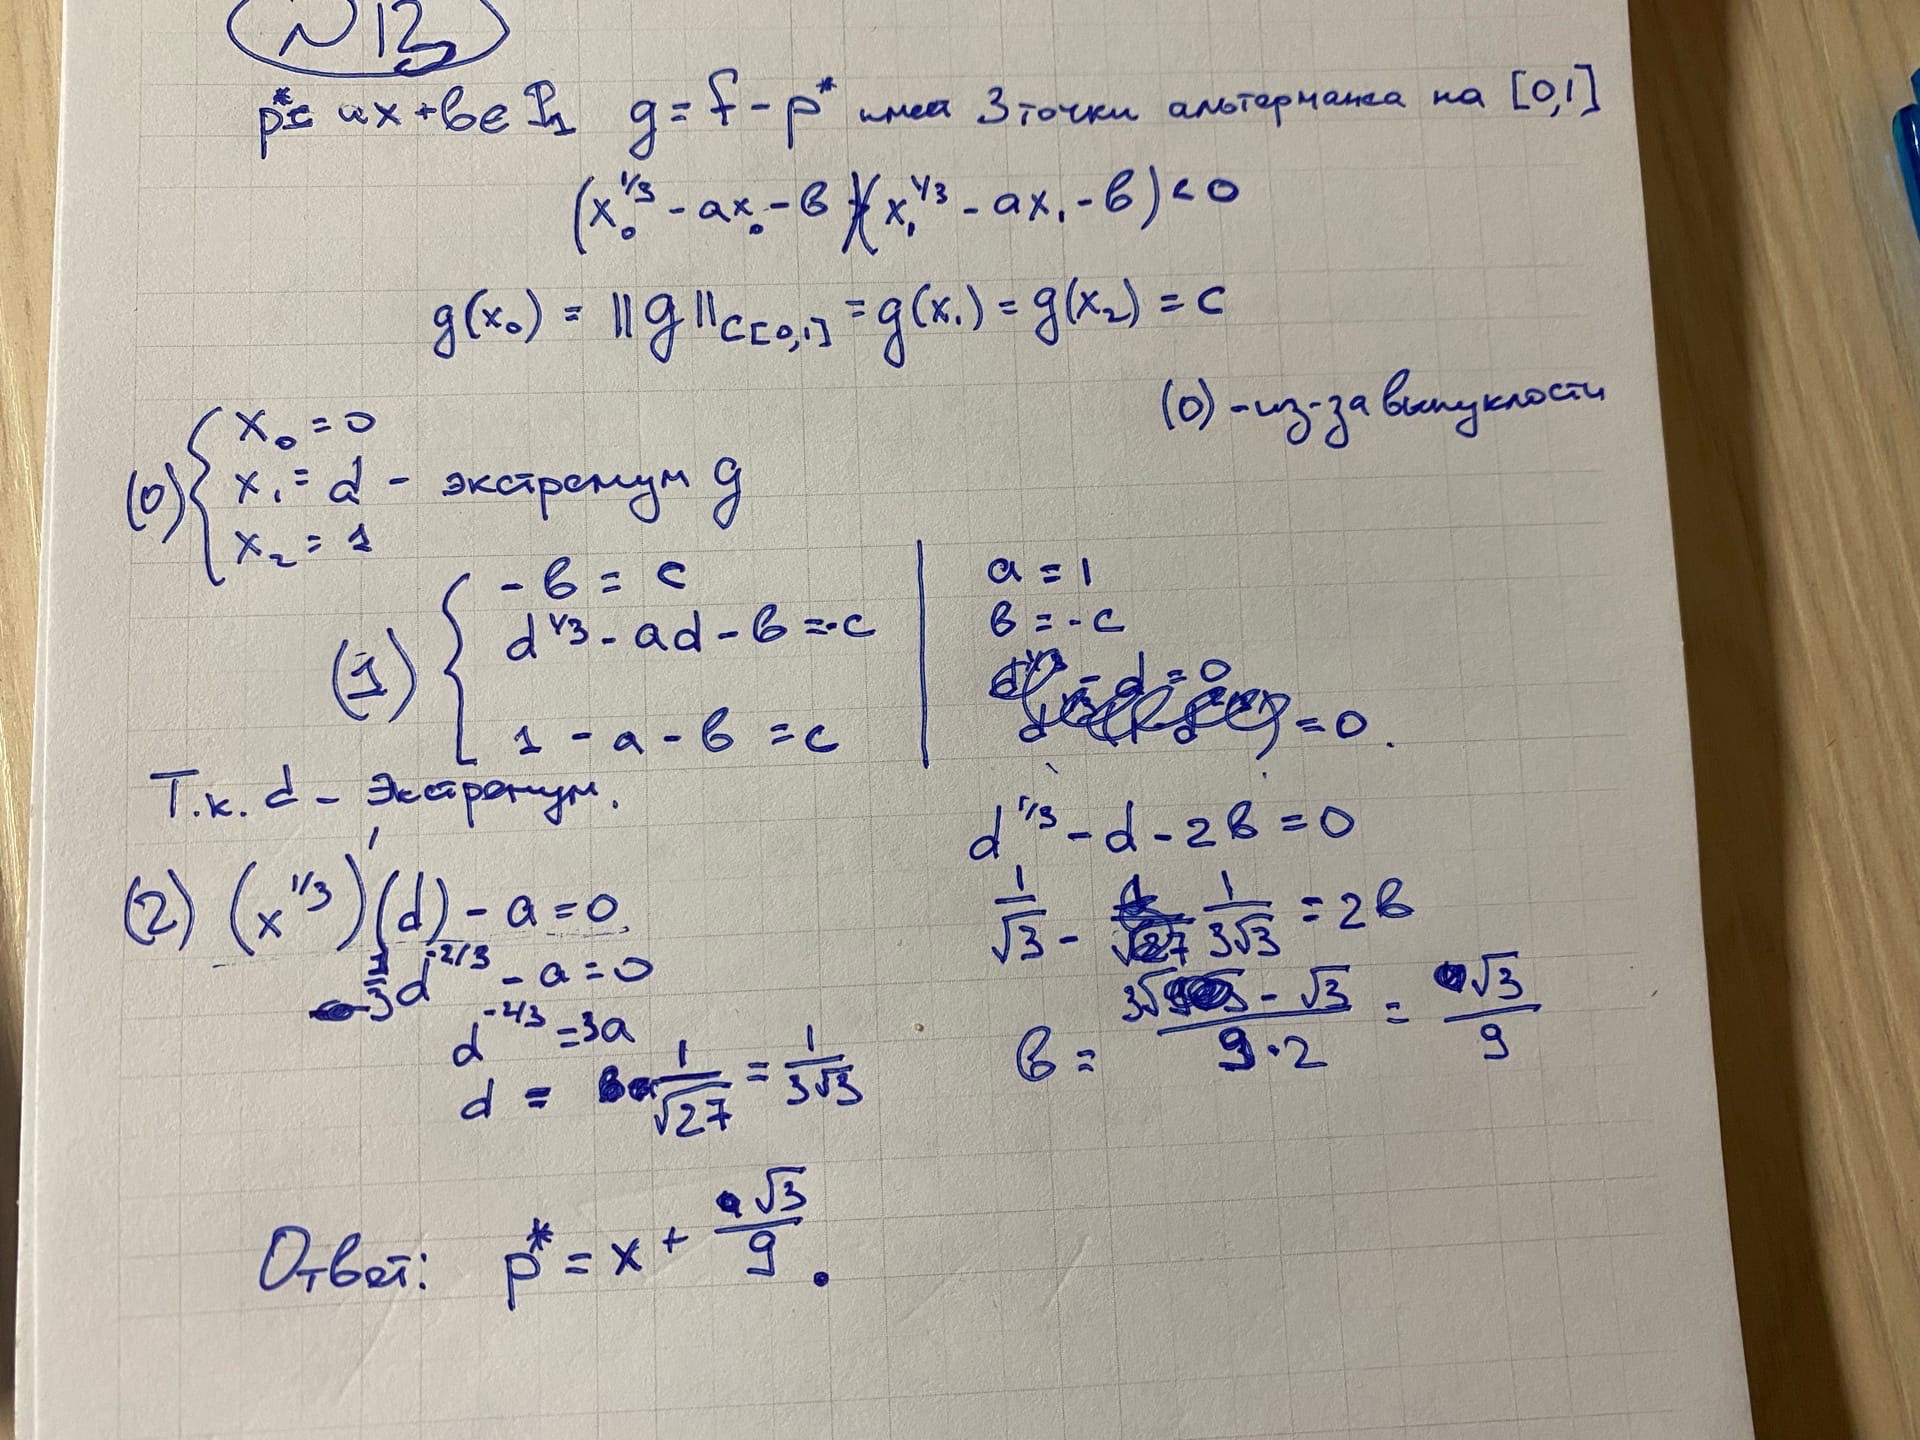 N13
p* = ax + b ∈ P₁ g = f - p* имеет 3 точки альтернанса на [0,1]
(x₀^1/3 - ax₀ - b)(x₁^1/3 - ax₁ - b) < 0
g(x₀) = ||g||_C[0,1] = g(x₁) = g(x₂) = c
(0) - из-за выпуклости
(0) { x₀ = 0
x₁ = d - экстремум g
x₂ = 1
(1) { -b = c
d^1/3 - ad - b = -c
1 - a - b = c
a = 1
b = -c
Т.к. d - экстремум.
(2) (x^1/3)'(d) - a = 0
1/3 d^-2/3 - a = 0
d^-2/3 = 3a
d = 1/√27 = 1/3√3
d^1/3 - d - 2b = 0
1/√3 - 1/3√3 = 2b
b = 3√3 - √3 / 9·2 = √3/9
Ответ: p* = x + √3/9.